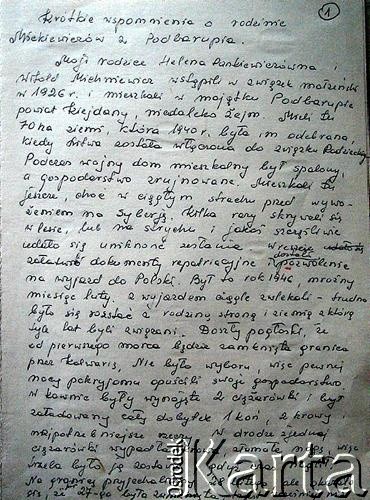 1
Krótkie wspomnienia o rodzinie
Mickiewiczów z Podbarupia.
Moji rodzice Helena Jankiewiczówna i
Witold wstąpili w związek małżeński
w 1926 r. i mieszkali w majątku Podbarupie
powiat Kiejdany, niedaleko Żejm. Mieli tu
70 ha ziemi, która 1940 r. była im odebrana,
kiedy Litwa została włączona do związku Radzieckiego
Podczas wojny dom mieszkalny był spalony,
a gospodarstwo zrujnowane. Mieszkali tu
jeszcze, choć w ciągłym strachu przed wywo-
zieniem na Syberję. Kilka razy skrywali się
w lesie, lub na strychu i jakoś szczęśliwie
udało się uniknąć zesłania w
dostali
dokumenty repatriacyjne i pozwolenie
na wyjazd do Polski. Był to rok 1946, mroźny
miesiąc luty. Z wyjazdem ciągle zwlekali - trudno
było się rozstać z rodzinną stroną i ziemią z którą
tyle lat byli związani. Doszły pogłoski, że
od pierwszego marca będzie zamknięta granica
przez Kalwarię. Nie było wyboru, więc pewnej
nocy pokryjomu opuścili swoje gospodarstwo.
W Kownie były wynajęte 2 ciężarówki i był
załadowany cały dobytek 1 koń, 2 krowy i
najpotrzebniejsze rzeczy. W drodze z jednej
ciężarówki wypadła krowa, złamała nogę, więc
trzeba było ją zostawić
Na granicę przyjechaliśmy 28 lutego, ale
że 27-go była zamknięta
ośrodek
Karta